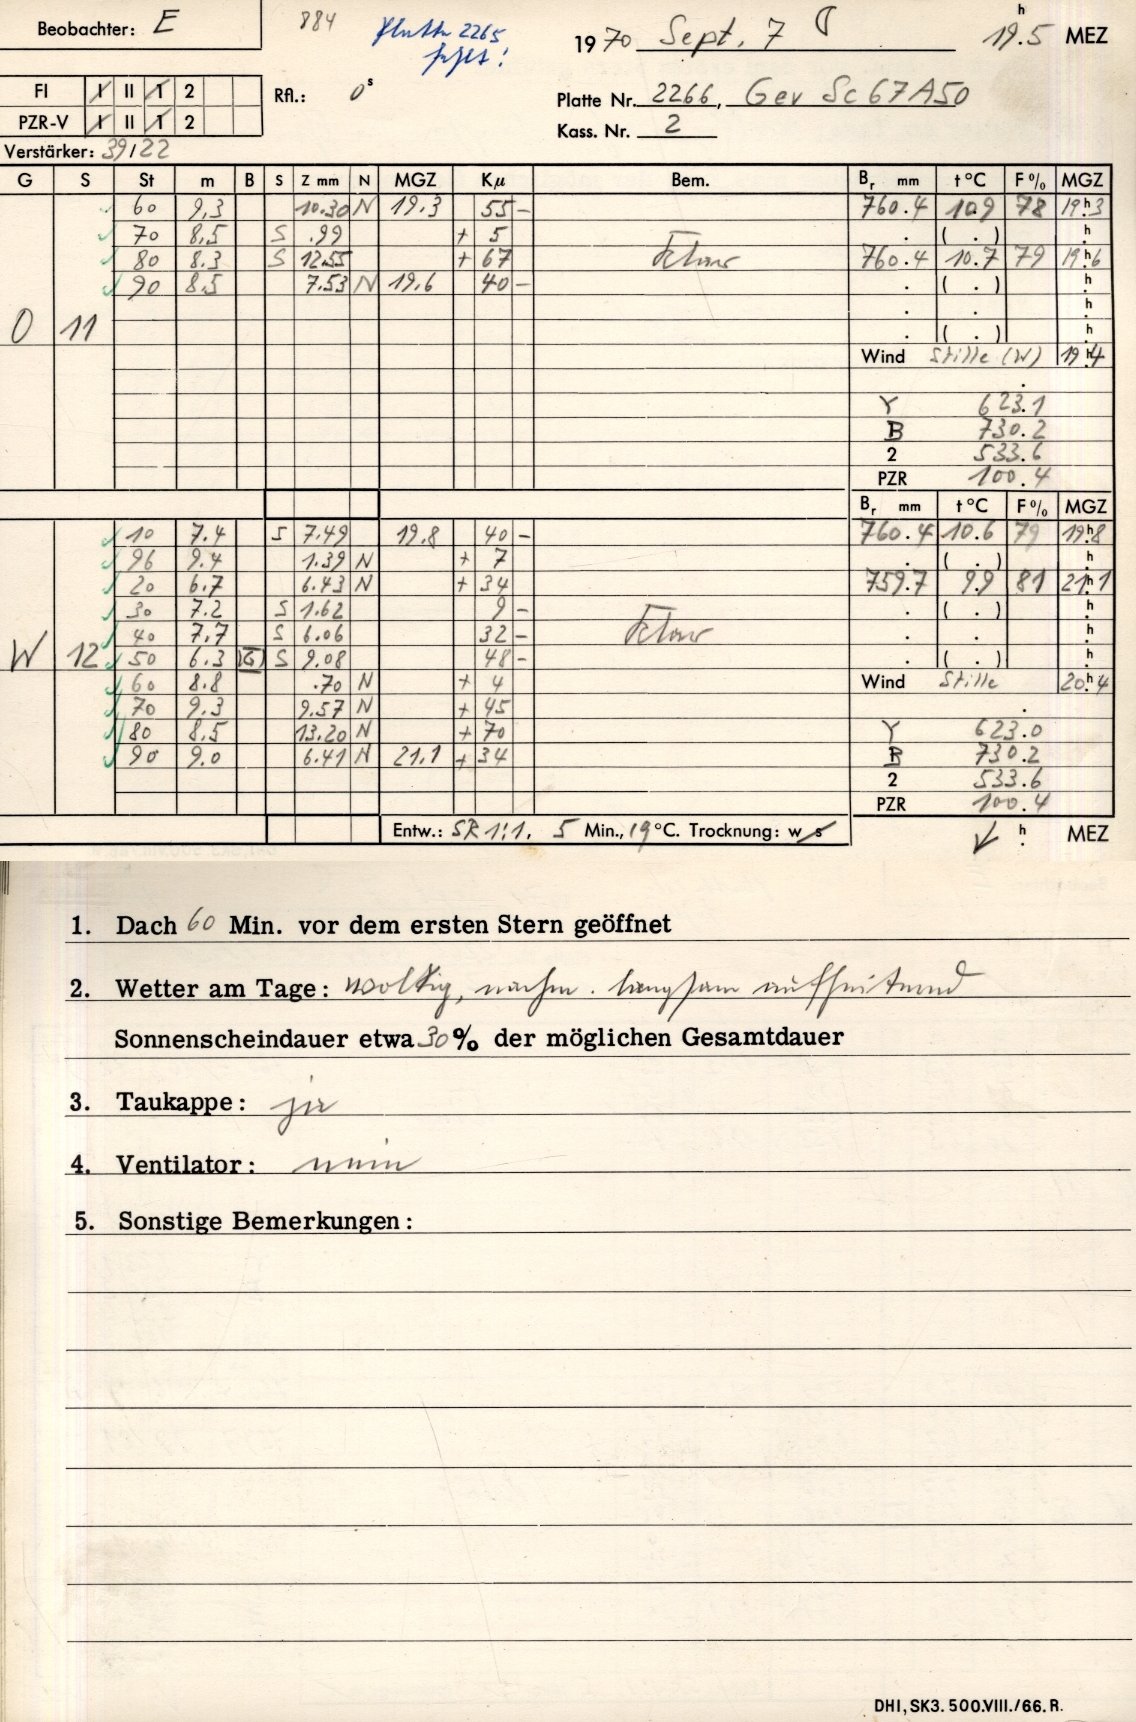 Beobachter: E
884
Platte 2265
fehlt!
1970 Sept. 7
19.5 h MEZ
FI I II 1 2
Rfl.: 0s
Platte Nr. 2266, Gev Sc 67A50
PZR-V I II 1 2
Kass. Nr. 2
Verstärker: 39/22
G S St m B S Z mm N MGZ Kµ Bem. Br mm t °C F % MGZ
60 9,3 10.30 N 19.3 55 – 760.4 10.9 78 19h3
70 8,5 S .99 + 5 . ( . ) h
80 8.3 S 12.55 + 67 klar 760.4 10.7 79 19h6
90 8.5 7.53 N 19.6 40 – . ( . ) h
. . h
O 11 . ( . ) h
Wind Stille (W) 19h4
.
Y 623.1
B 730.2
2 533.6
PZR 100.4
Br mm t °C F % MGZ
10 7.4 S 7.49 19.8 40 – 760.4 10.6 79 19h8
96 9.4 1.39 N + 7 . ( . ) h
20 6.7 6.43 N + 34 759.7 9.9 81 21h1
30 7.2 S 1.62 9 – . ( . ) h
40 7.7 S 6.06 klar 32 – . . h
W 12 50 6.3 S 9.08 48 – . ( . ) h
60 8.8 .70 N + 4 Wind Stille 20h4
70 9.3 9.57 N + 45 .
80 8.5 13.20 N + 70 Y 623.0
90 9.0 6.41 N 21.1 + 34 B 730.2
2 533.6
PZR 100.4
Entw.: SR 1:1. 5 Min., 19 °C. Trocknung: w s
h MEZ
1. Dach 60 Min. vor dem ersten Stern geöffnet
2. Wetter am Tage: wolkig, nachm. langsam aufheiternd
Sonnenscheindauer etwa 30% der möglichen Gesamtdauer
3. Taukappe: ja
4. Ventilator: nein
5. Sonstige Bemerkungen:
DHI, SK3. 500.VIII./66. R.